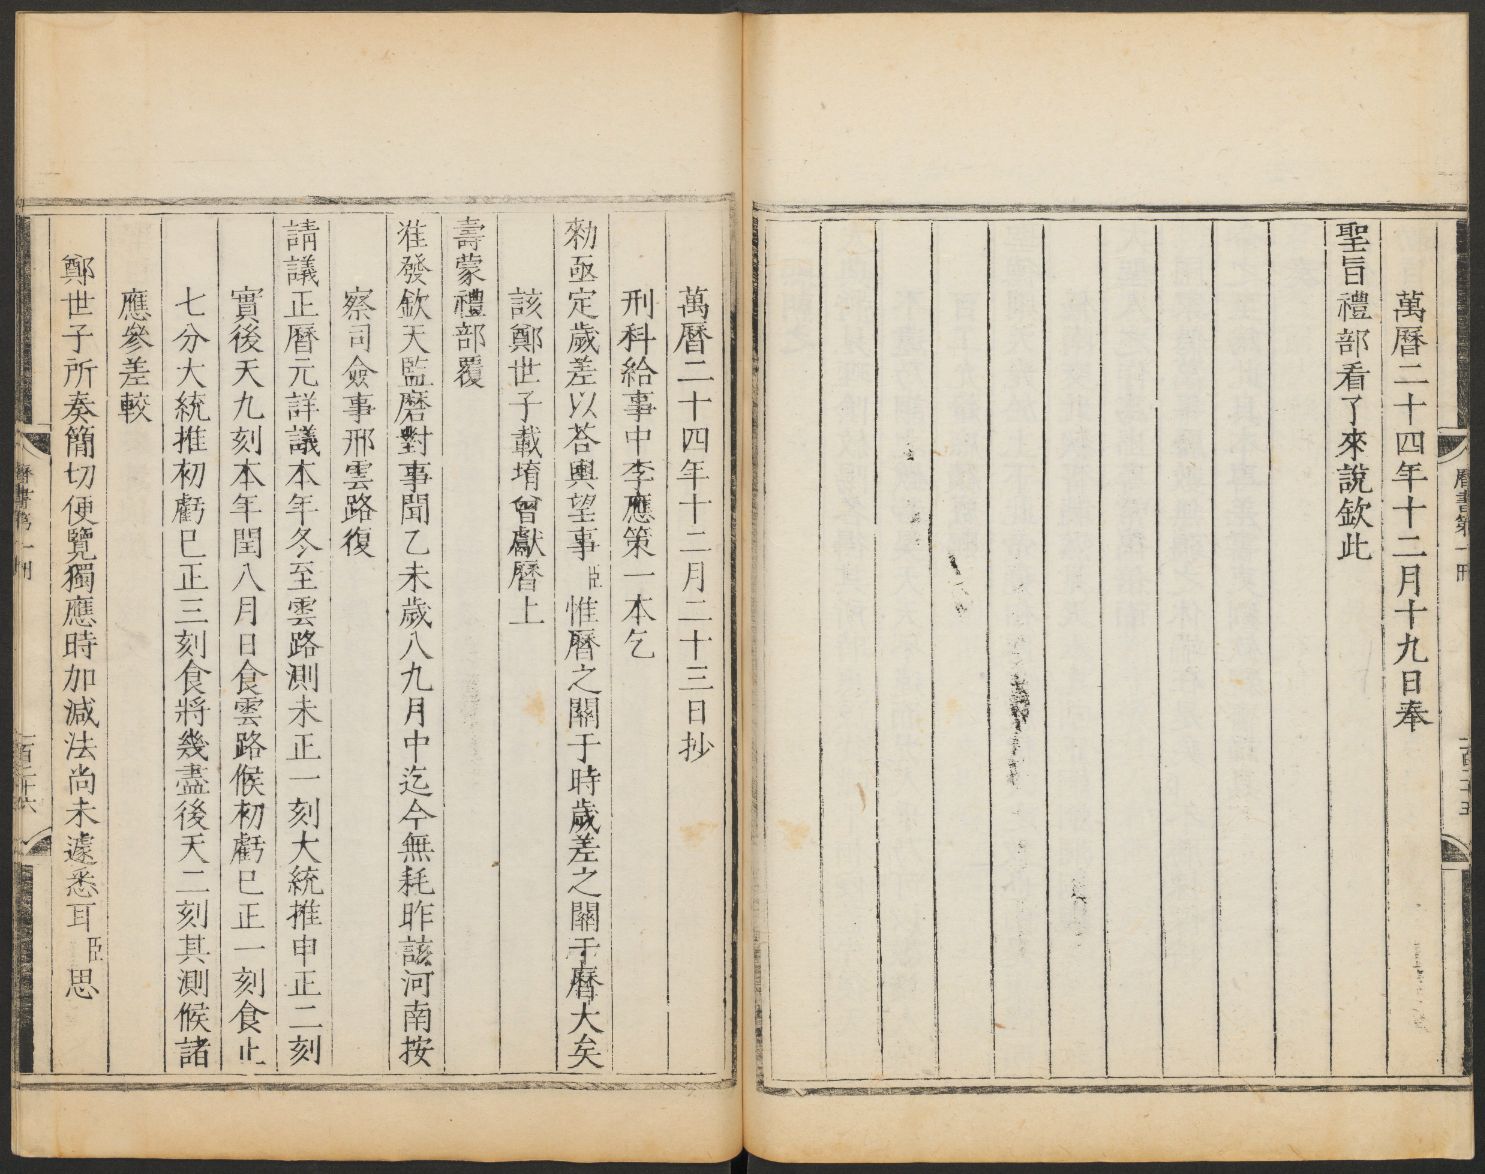 萬曆二十四年十二月十九日奉
聖旨禮部看了來說欽此
曆書第一冊
一百二十五
萬曆二十四年十二月二十三日抄
刑科給事中李應策一本乞
勑亟定歲差以荅輿望事臣惟曆之關于時歲差之關于曆大矣
該鄭世子載堉曾獻曆上
壽蒙禮部覆
准發欽天監磨對事聞乙未歲八九月中迄今無耗昨該河南按
察司僉事邢雲路復
請議正曆元詳議本年冬至雲路測未正一刻大統推申正二刻
實後天九刻本年閏八月日食雲路候初虧巳正一刻食止
七分大統推初虧巳正三刻食將幾盡後天二刻其測候諸
應參差較
鄭世子所奏簡切便覽獨應時加减法尚未遽悉耳臣思
曆書第一冊
一百二十六